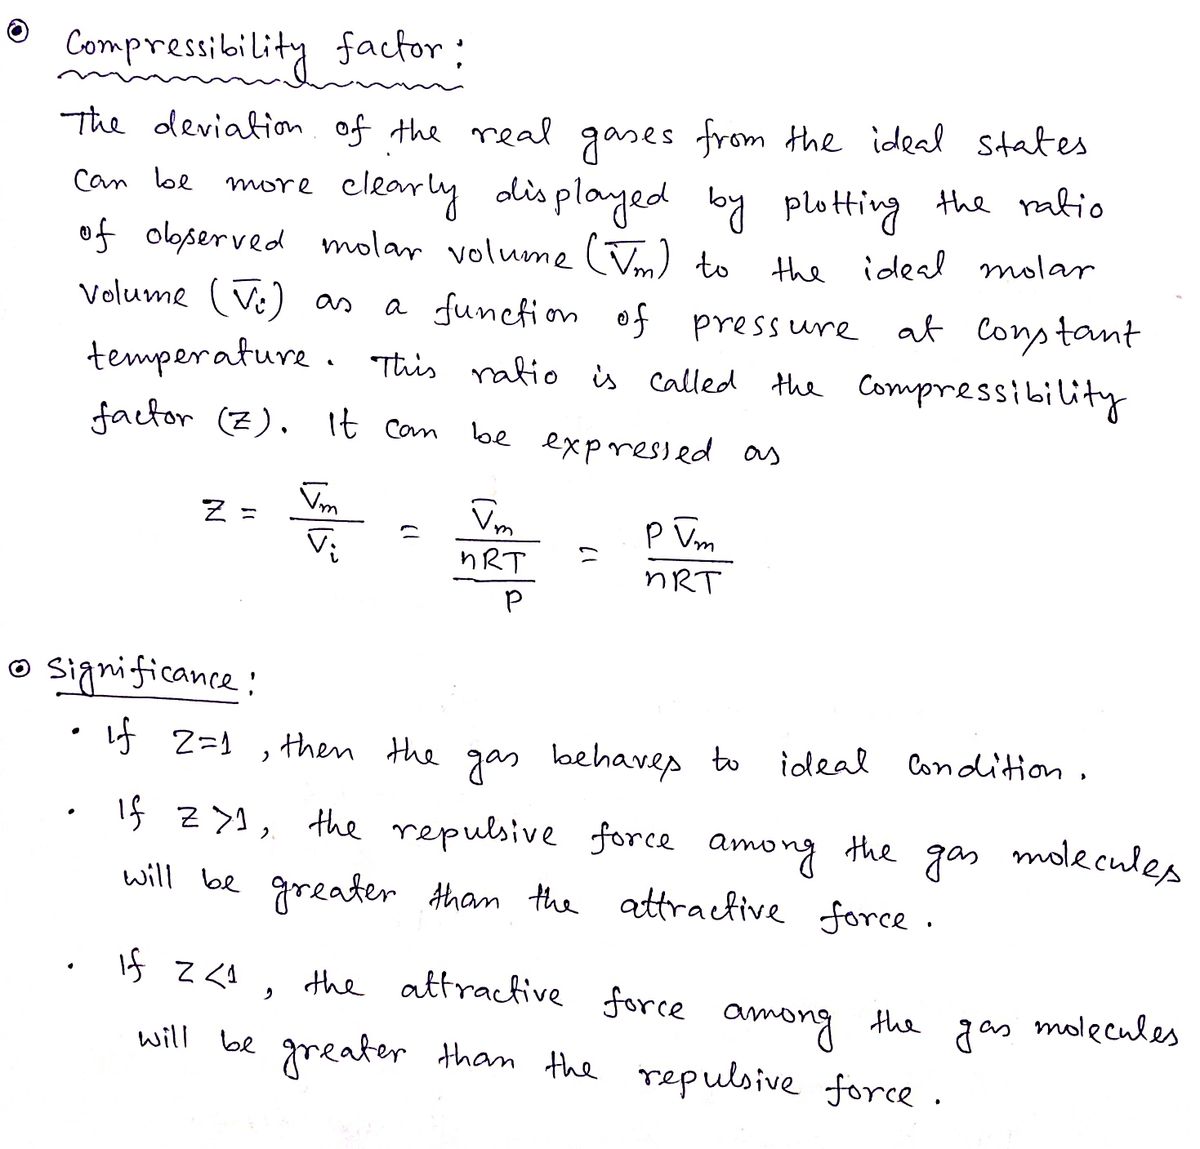 Compressibility factor:
The deviation of the real gases from the ideal states
can be more clearly displayed by plotting the ratio
of observed molar volume (V̅m) to the ideal molar
volume (V̅i) as a function of pressure at constant
temperature. This ratio is called the compressibility
factor (Z). It can be expressed as
Z = V̅m / V̅i = V̅m / (nRT / P) = P V̅m / nRT
Significance:
· If Z=1, then the gas behaves to ideal condition.
· If Z>1, the repulsive force among the gas molecules
will be greater than the attractive force.
· If Z<1, the attractive force among the gas molecules
will be greater than the repulsive force.